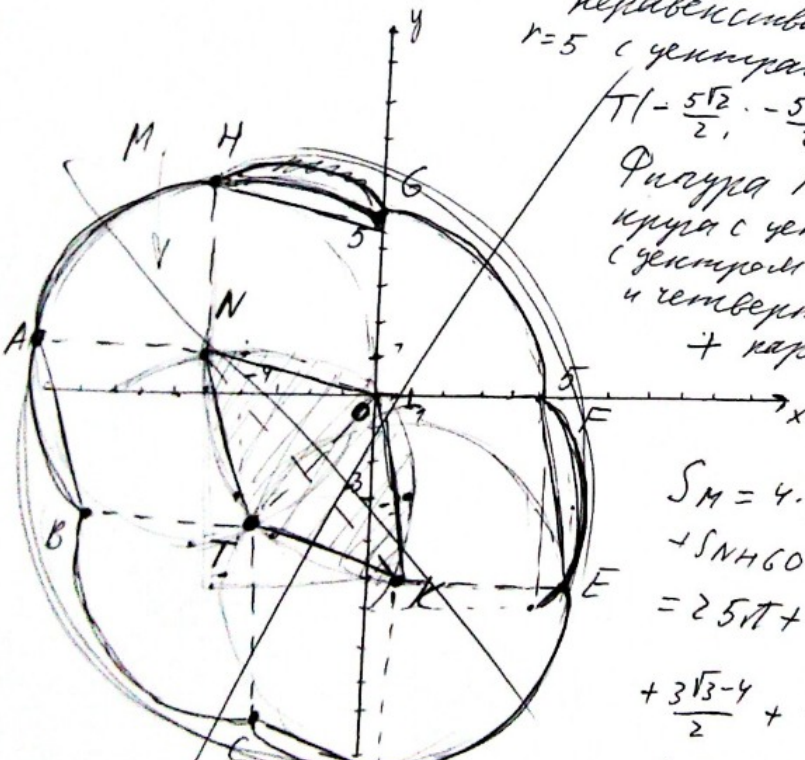 неравенства
r=5 с центрам
T(-5√2/2, -5
Фигура
круга с цен
с центром
и четверт
+ пар
S_M = 4.
+S_NHGO
= 25π +
+ (3√3-4)/2 +
y
M H G
5
A N
-4 1 5
O 1 F x
3
B T K E
C